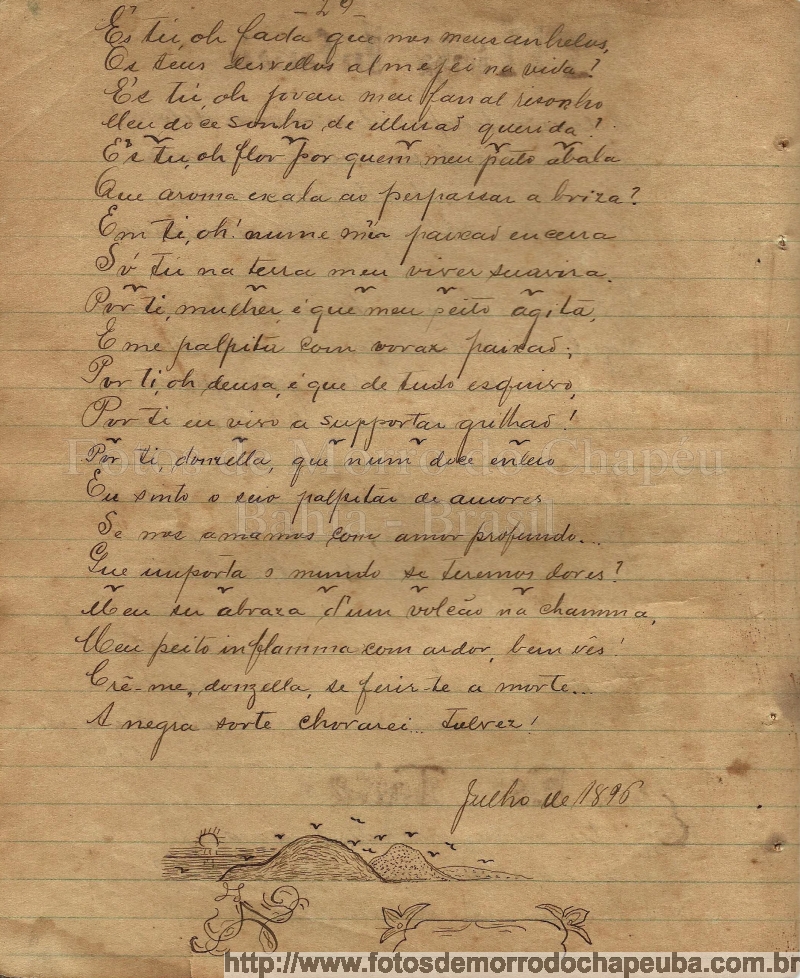 -29-
És tú, oh fada que nos meus anhelos,
Os teus desvellos almejei na vida?
És tú, oh jovem meu fanal risonho
Meu doce sonho de illusaõ querida?
És tu, oh flor por quem meu peito abala
Que aroma exala ao perpassar a briza?
Em ti, oh! nume paixaõ encerra
Só tú na terra meu viver suaviza.
Por ti, mulher, é que meu peito agita,
E me palpita com voraz paixaõ;
Por ti, oh deusa, é que de tudo esquivo,
Por ti eu vivo a supportar grilhaõ!
Por ti, donzella, que num doce enleio
Eu sinto o seio palpitar de amores
Se nos amamos com amor profundo...
Que importa o mundo se teremos dores?
Meu ser abraza d'um volcão na chamma,
Meu peito inflamma com ardor, bem vês!
Crê-me, donzella, se ferir-te a morte...
A negra sorte chorarei... talvez!
Julho de 1896
Fotos de Morro do Chapeu
Bahia - Brasil
http://www.fotosdemorrodochapeuba.com.br